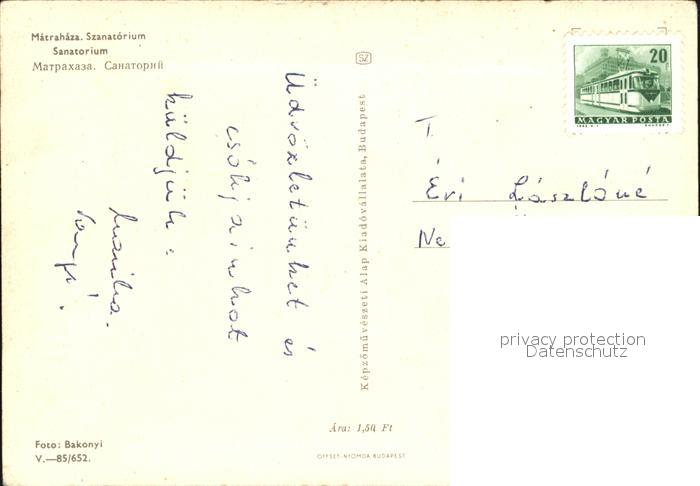 Mátraháza. Szanatórium
Sanatorium
Матрахаза. Санаторий
Üdvözletünket és
csókjainkat
küldjük:
SZ
Képzőművészeti Alap Kiadóvállalata, Budapest
20
MAGYAR POSTA
T.
Évi Lászlóné
Ne
privacy protection
Datenschutz
Ára: 1,50 Ft
Foto: Bakonyi
V.—85/652.
OFFSET-NYOMDA BUDAPEST